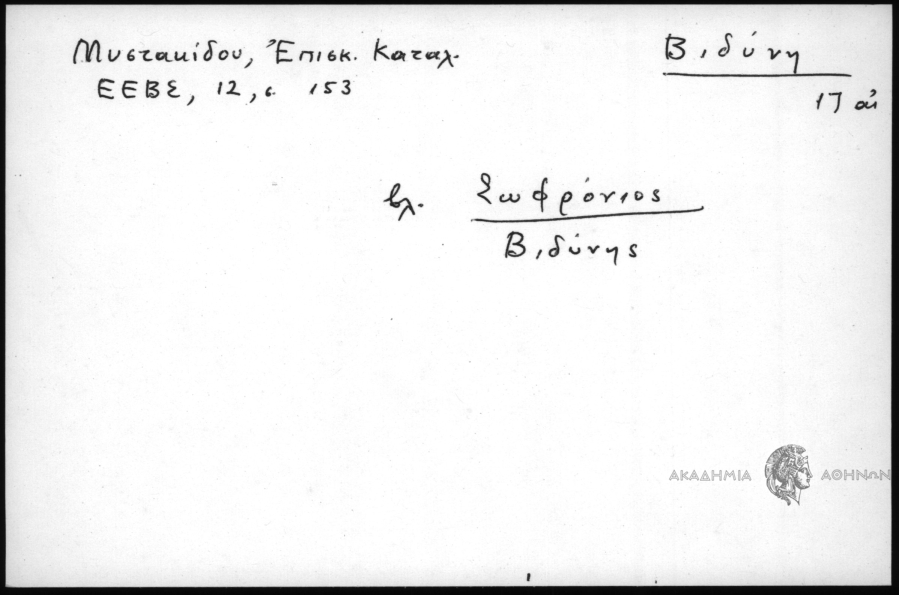 Μυστακίδου, Ἐπισκ. Καταλ.
ΕΕΒΣ, 12, σ. 153
Βιδύνη
17 αι
βλ. Σωφρόνιος
Βιδύνης
ΑΚΑΔΗΜΙΑ ΑΘΗΝΩΝ